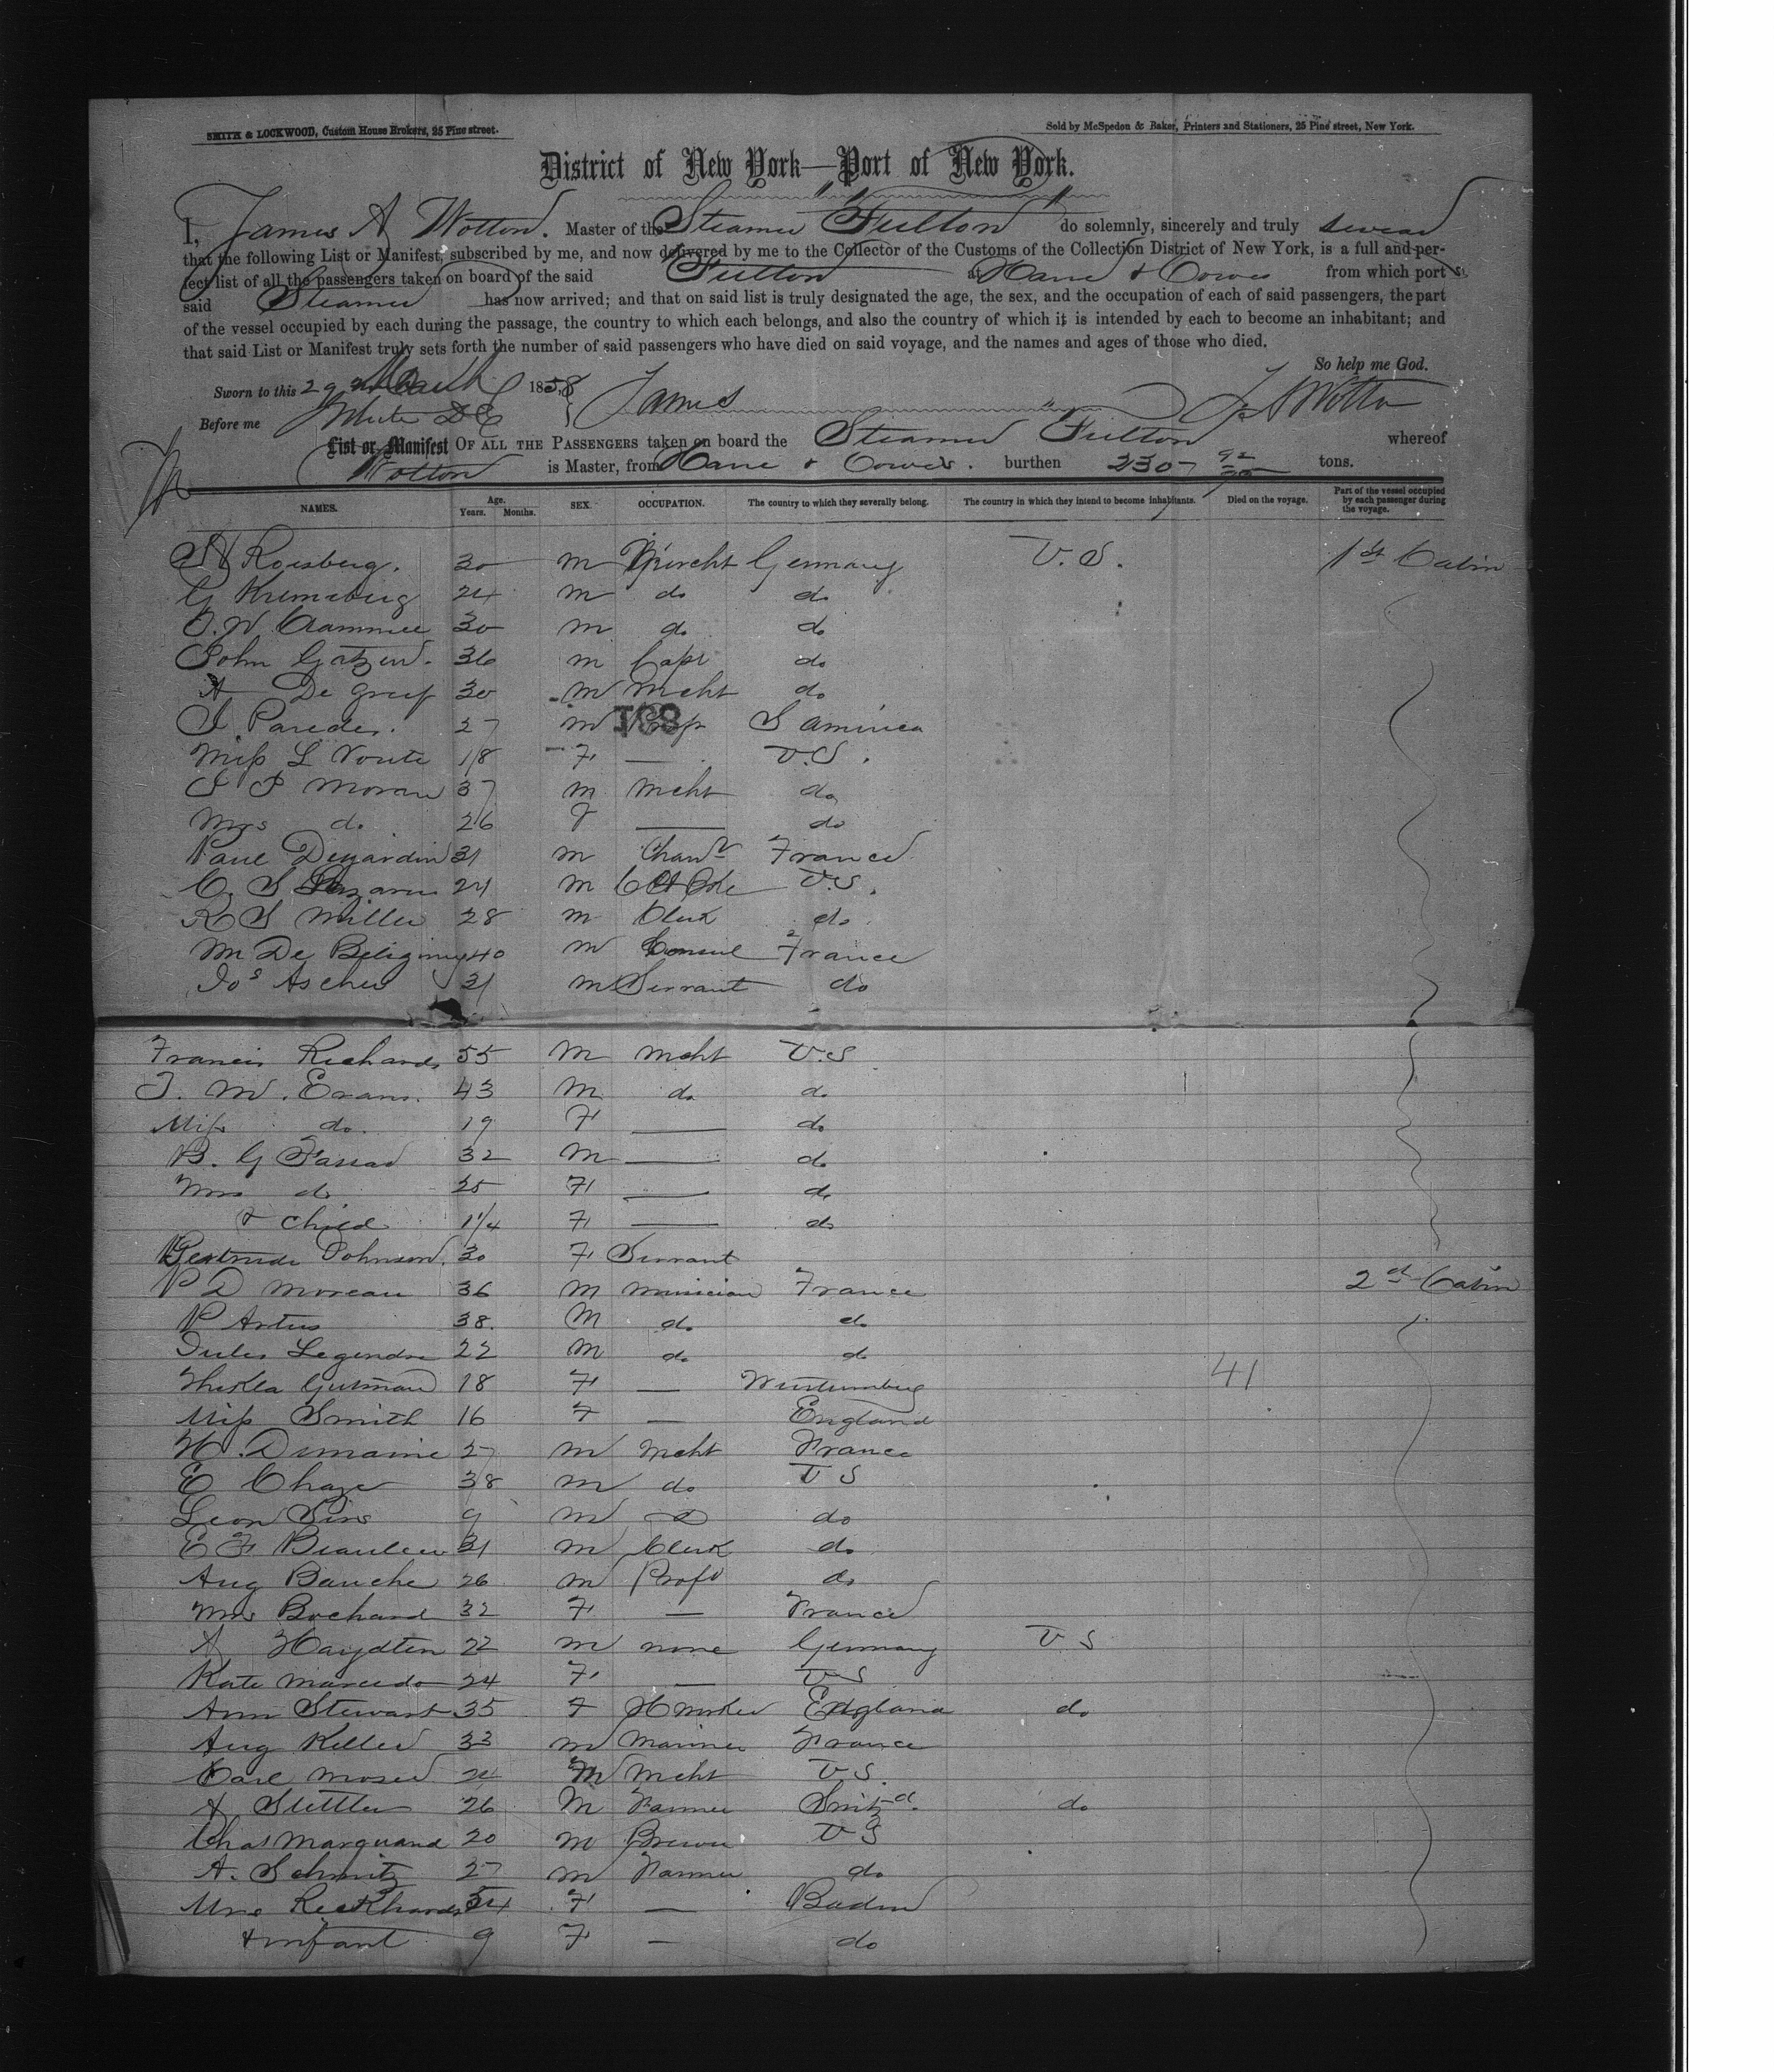 SMITH & LOCKWOOD, Custom House Brokers, 25 Pine street.
Sold by McSpedon & Baker, Printers and Stationers, 25 Pine street, New York.
District of New York—Port of New York.
I, James A Wotton. Master of the Steamer "Fulton" do solemnly, sincerely and truly swear
that the following List or Manifest, subscribed by me, and now delivered by me to the Collector of the Customs of the Collection District of New York, is a full and per-
fect list of all the passengers taken on board of the said Fulton at Havre & Cowes from which port s
said Steamer has now arrived; and that on said list is truly designated the age, the sex, and the occupation of each of said passengers, the part
of the vessel occupied by each during the passage, the country to which each belongs, and also the country of which it is intended by each to become an inhabitant; and
that said List or Manifest truly sets forth the number of said passengers who have died on said voyage, and the names and ages of those who died.
So help me God.
Sworn to this 29 March 1858
Before me
James
J A Wotton
List or Manifest OF ALL THE PASSENGERS taken on board the Steamer Fulton whereof
Wotton is Master, from Havre & Cowes. burthen 2307 92/95 tons.
NAMES. Age. Years. Months. SEX. OCCUPATION. The country to which they severally belong. The country in which they intend to become inhabitants. Died on the voyage. Part of the vessel occupied by each passenger during the voyage.
Rosberg. 30 m Mercht Germany U.S. 1st Cabin
G 24 m do do
30 m do do
John Gatzen. 36 m Capt do
A De Greef 30 m Mcht do
188
Paredes. 27 m S America
Miss L Voute 18 F — U.S.
Moran 37 m Mcht do
Mrs do 26 F — do
Paul Dejardin 31 m France
C. S 24 m U.S.
R S Miller 28 m Clerk do
M De Beligny 40 m Consul France
Jos Ascher 31 m Servant do
Francis Richards 55 M Mcht U.S
T. W. Evans. 43 M do do
Miss do. 19 F — do
B. G 32 M — do
Mrs do 25 F — do
& child 1 1/4 F — do
Gertrude Johnson. 30 F Servant
P D Moreau 36 M Musician France 2d Cabin
P Artus 38. M do do
Jules Legendre 22 M do do
Thekla Gutman 18 F — Wurtemberg 41
Miss Smith 16 F — England
H. Dumaine 27 M Mcht France
E Chaze 38 m do U S
Leon 9 m do
E F Beaulieu 31 m Clerk do
Aug Bauche 26 m Profr do
Mrs Bochard 32 F — France
A Haydten 22 m none Germany U S
Kate 24 F — U S
Ann Stewart 35 F England do
Aug Keller 33 m Mariner France
Carl Moser 24 M Mcht U S.
A Stettler 26 M Farmer Switzd. do
Chas Marquand 20 m Brewer U S
A. Schmitz 27 m Farmer do
Mrs F — Baden
& infant 9 F — do